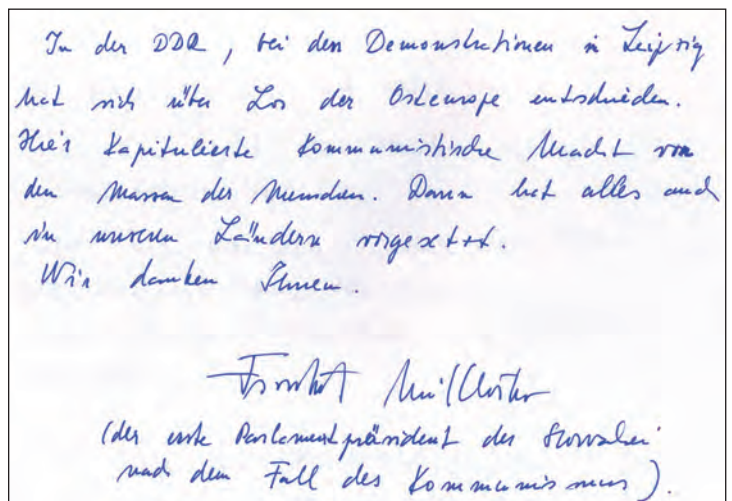 In der DDR, bei den Demonstrationen in Leipzig
hat sich über Los der Osteurope entschieden.
Hier Kapitulierte Kommunistische Macht von
den Massen der Menschen. Dann hat alles auch
in unseren Ländern vorgesetzt.
Wir danken Ihnen.
(der erste Parlamentpräsident der Slowakei
nach dem Fall des Kommunismus).